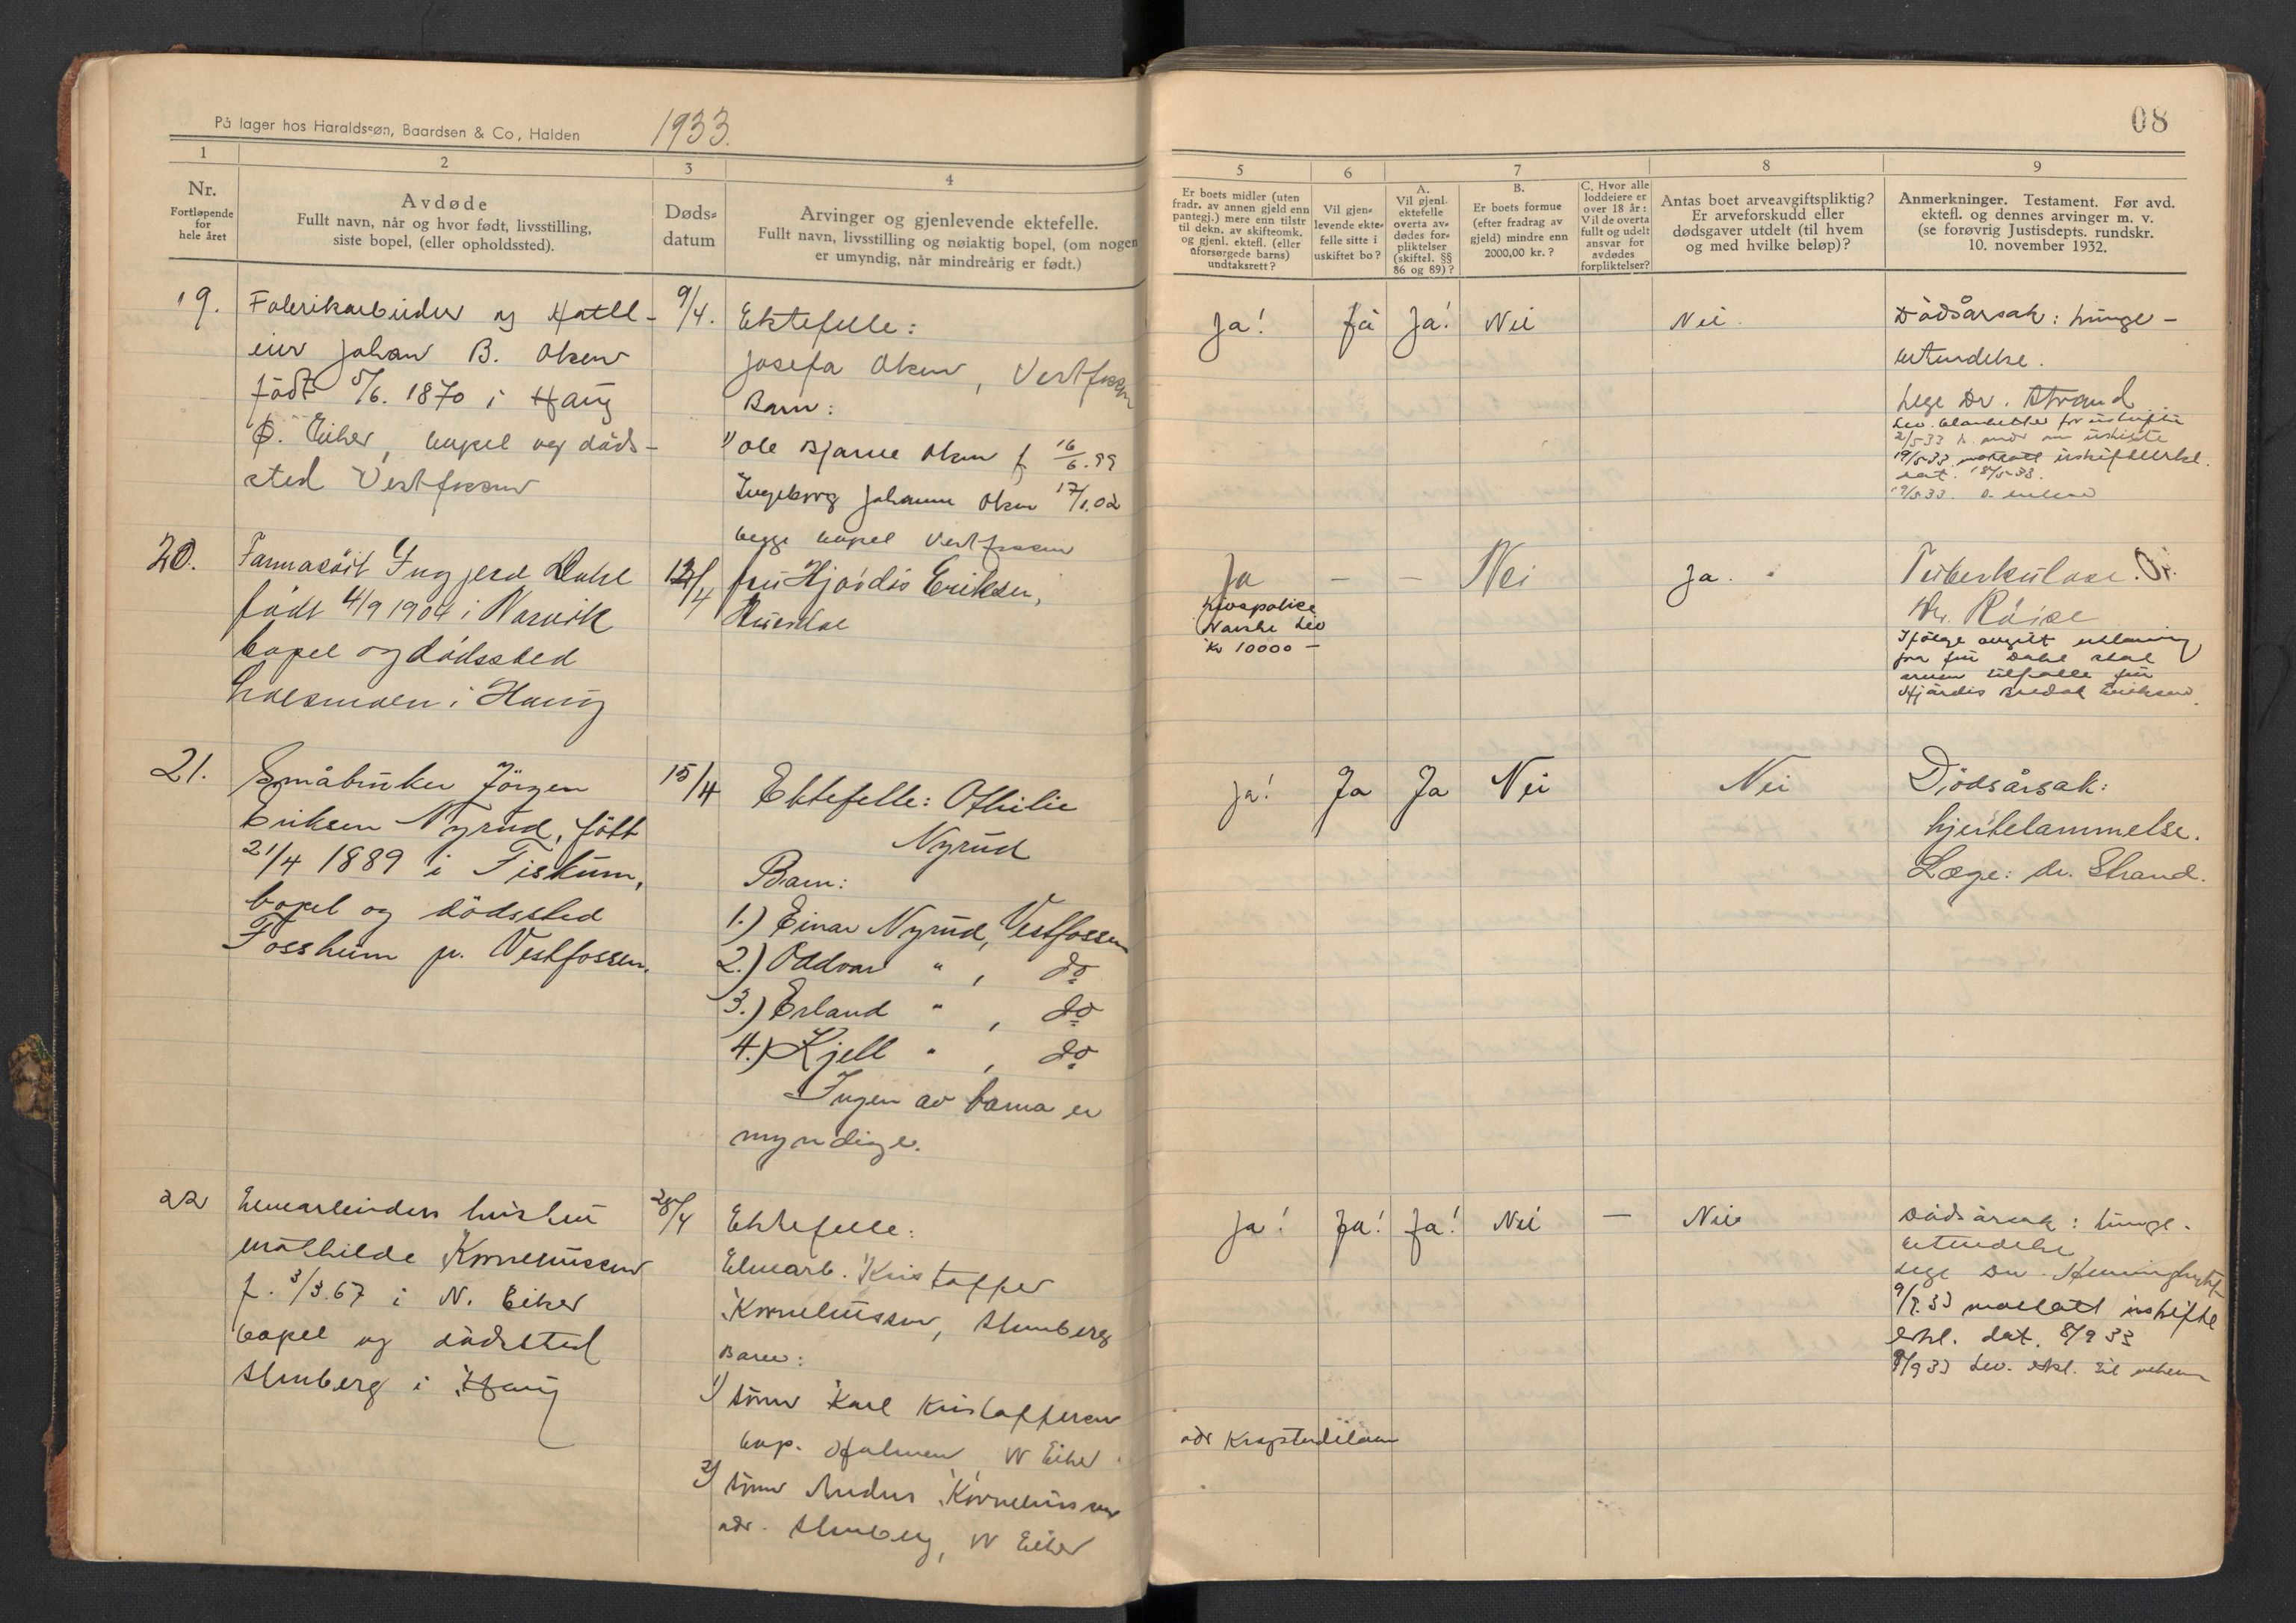 På lager hos Haraldssøn, Baardsen & Co, Halden
1933.
1
2
3
4
Nr.
Fortløpende
for
hele året
Avdøde
Fullt navn, når og hvor født, livsstilling,
siste bopel, (eller opholdssted).
Døds-
datum
Arvinger og gjenlevende ektefelle.
Fullt navn, livsstilling og nøiaktig bopel, (om nogen
er umyndig, når mindreårig er født.)
19.
Fabrikarbeider og
eier Johan B. Olsen
født 5/6. 1870 i Haug
Ø. Eiker, bopel og døds-
sted Vestfossen
9/4.
Ektefelle:
Josefa Olsen, Vestfossen
Barn:
1) Ole Bjarne Olsen f 16/6.99
Ingeborg Johanne Olsen 17/1.02
begge bopel Vestfossen
20.
Farmasöit Ingjerd Dahl
född 4/9 1904 i Narvik
bopel og dödssted
i Haug
12/4
fru Hjördis Eriksen,
21.
Småbruker Jörgen
Eriksen Nyrud, fött
21/4 1889 i Fiskum,
bopel og dödssted
Fossheim pr. Vestfossen.
15/4
Ektefelle: Othilie
Nyrud
Barn:
1.) Einar Nyrud, Vestfossen
2.) Oddvar " , do
3.) Erland " , do
4.) Kjell " , do
Ingen av barna er
myndige.
22
hustru
Mathilde Kornelius­sen
f. 3/3.67 i N. Eiker
bopel og dödssted
Stenberg i Haug
28/4
Ektefelle:
Kristoffer
Korneliussen, Stenberg
Barn:
1) sönn Karl Kristoffersen
bop. N Eiker
2) sönn Anders Korneliussen
adr. Stenberg, N Eiker
08
5
6
7
8
9
Er boets midler (uten
fradr. av annen gjeld enn
pantegj.) mere enn tilstr
til dekn. av skifteomk.
og gjenl. ektefl. (eller
uforsørgede barns)
undtaksrett?
Vil gjen-
levende ekte-
felle sitte i
uskiftet bo?
A.
Vil gjenl.
ektefelle
overta av-
dødes for-
pliktelser
(skiftel. §§
86 og 89)?
B.
Er boets formue
(efter fradrag av
gjeld) mindre enn
2000,00 kr.?
C. Hvor alle
loddeiere er
over 18 år:
Vil de overta
fullt og udelt
ansvar for
avdødes
forpliktelser?
Antas boet arveavgiftspliktig?
Er arveforskudd eller
dødsgaver utdelt (til hvem
og med hvilke beløp)?
Anmerkninger. Testament. Før avd.
ektefl. og dennes arvinger m. v.
(se forøvrig Justisdepts. rundskr.
10. november 1932.
Ja! Ja Ja! Nei Nei.
Dödsårsak: lunge-
betendelse.
Lege Dr. Strand
19/5-33 mottatt uskifteerkl.
dat. 18/5-33.
Ja — — Nei Ja.
Livspolice
Norske Liv
Kr 10000 —
Tuberkulose.
Dr. Röise
Ifölge avgitt erklæring
fra fru Dahl skal
arven tilfalle fru
Hjördis Eriksen
Ja! Ja Ja Nei Nei
Dödsårsak:
hjertelammelse.
Læge: dr. Strand.
Ja! Ja! Ja! Nei — Nei
Dödsårsak: lunge-
betendelse
Lege Dr.
9/9.33 mottatt uskifte
erkl. dat. 8/9 33
9/9 33 lev. erkl. til
adr